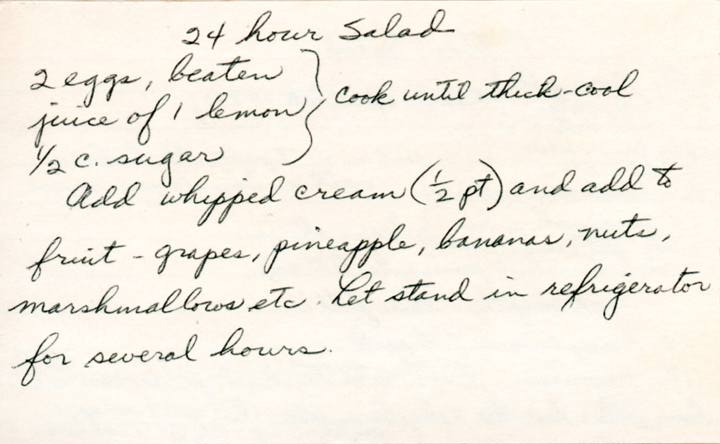 24 hour Salad
2 eggs, beaten
juice of 1 lemon } cook until thick-cool
1/2 c. sugar
Add whipped cream (1/2 pt) and add to
fruit - grapes, pineapple, bananas, nuts,
marshmallows etc. Let stand in refrigerator
for several hours.